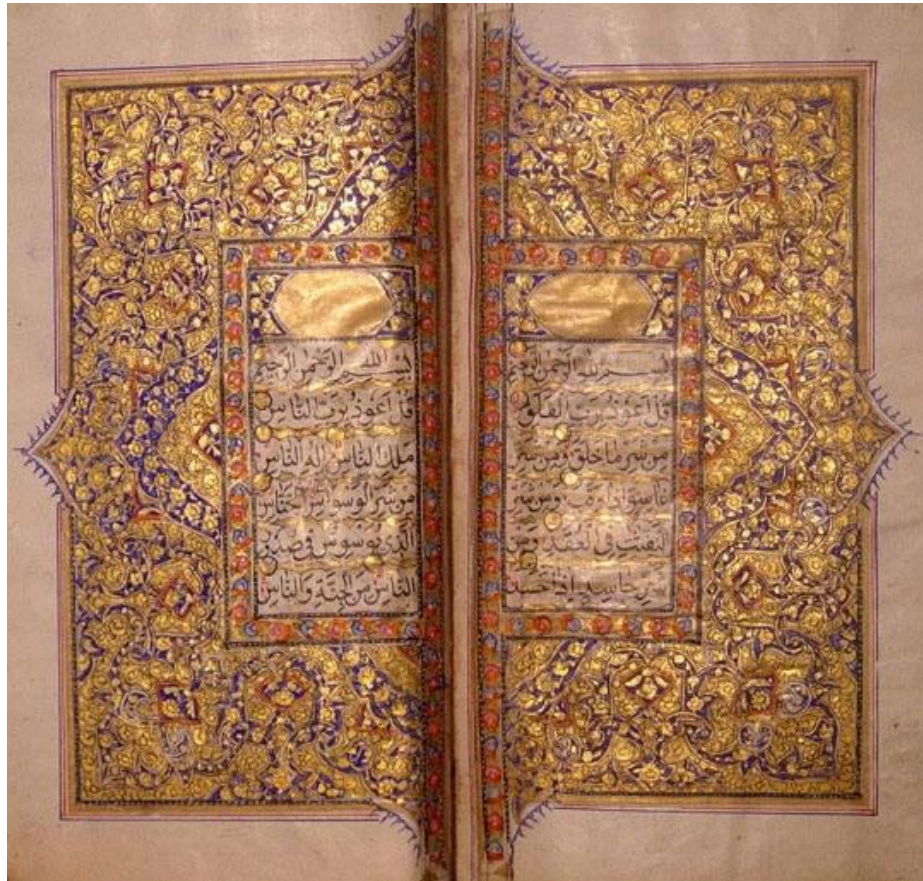 بسم الله الرحمن الرحيم
قل اعوذ برب الفلق
من شر ما خلق ومن شر
غاسق اذا وقب ومن شر
النفثت في العقد ومن
شر حاسد اذا حسد
بسم الله الرحمن الرحيم
قل اعوذ برب الناس
ملك الناس اله الناس
من شر الوسواس الخناس
الذي يوسوس في صدور
الناس من الجنة والناس